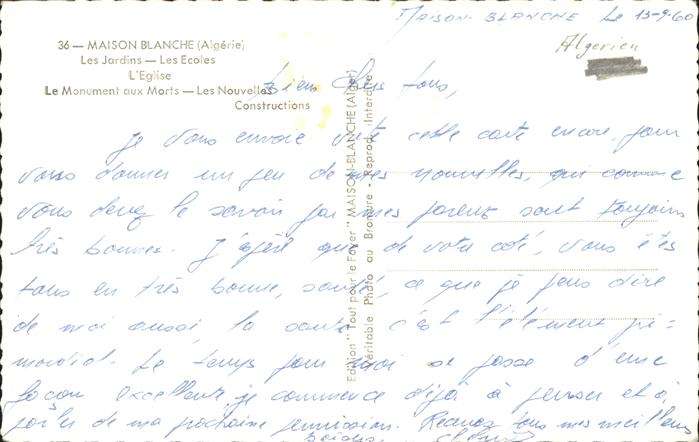 MAISON BLANCHE le 13-9-60
Algerien
36 — MAISON BLANCHE (Algérie)
Les Jardins — Les Ecoles
L'Eglise
Le Monument aux Morts — Les Nouvelles
Constructions
Edition "Tout pour le Foyer" MAISON-BLANCHE (Alger)
Véritable Photo au Bromure - Reprod. Interdite
Bien chers tous,
je vous envoie vite cette carte encore, pour
vous donner un peu de mes nouvelles, qui comme
vous devez le savoir par mes parents sont toujours
très bonnes. J'espère que de votre coté, vous êtes
tous en très bonne santé, ce que je peux dire
de moi aussi, la santé c'est l'élément pri-
mordial. Le temps pour moi se passe d'une
façon excellente, je commence déjà à penser et à
parler de ma prochaine permission. Recevez tous mes meilleurs
baisers.